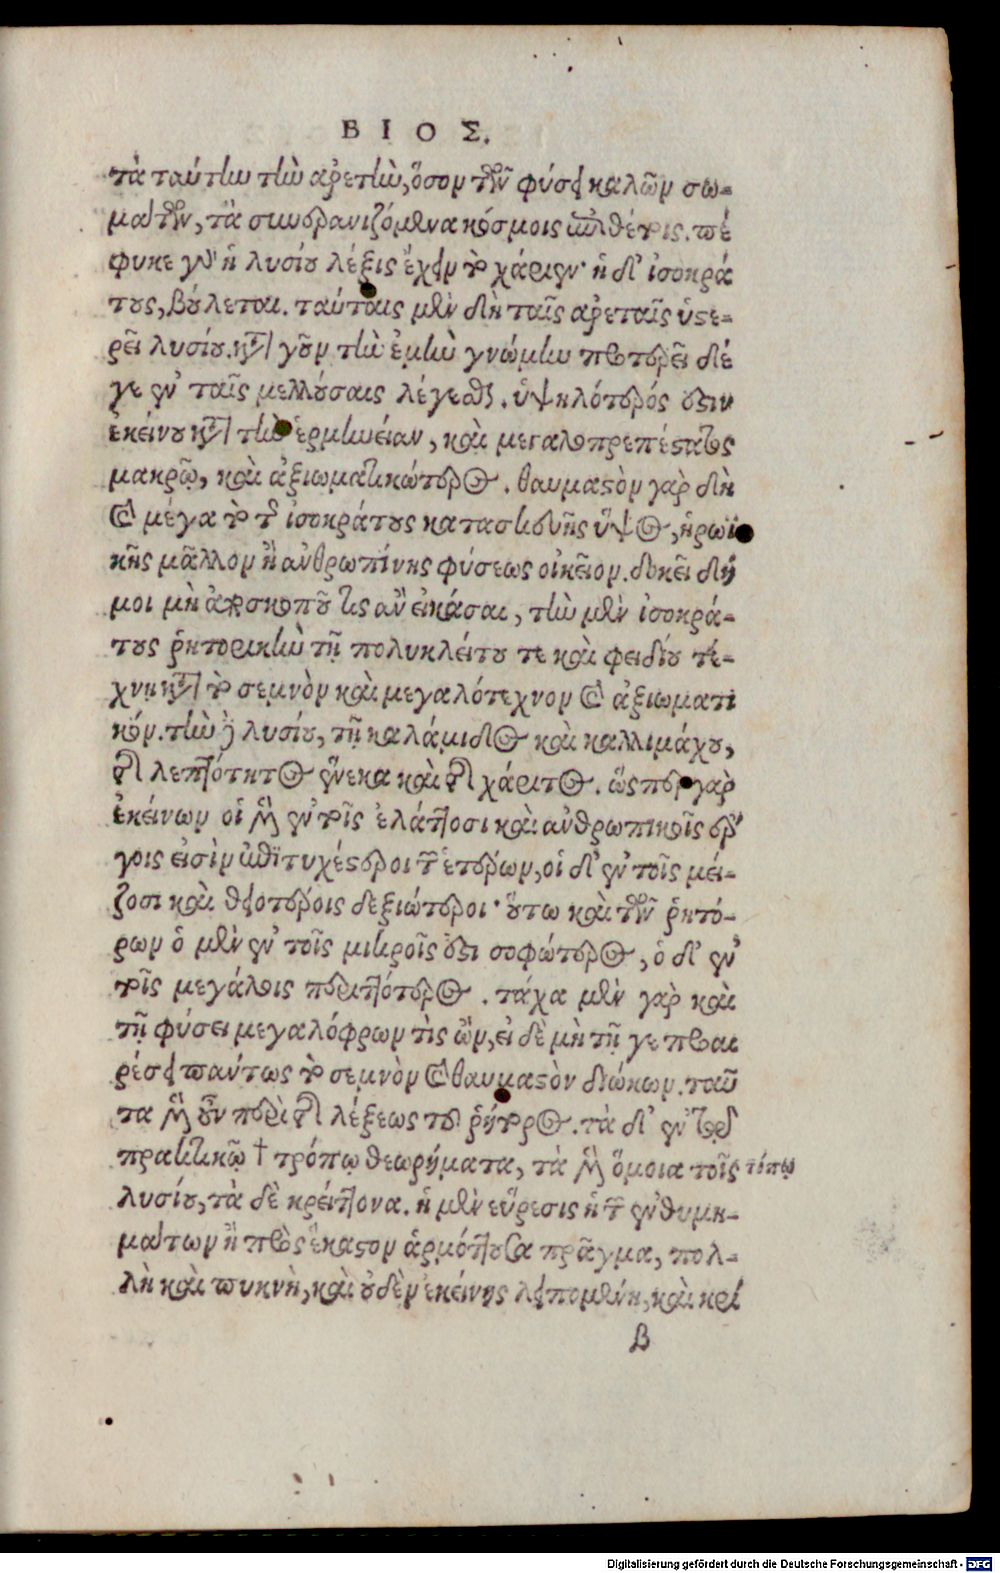 ΒΙΟΣ.
τὰ ταύτην τὴν ἀρετὴν, ὅσον τῶν φύσει καλῶν σω-
μάτων, τὰ συνερανιζόμενα κόσμοις ἐπιθέτοις. πέ
φυκε γὰρ ἡ λυσίου λέξις ἔχειν τὸ χάριεν· ἡ δ' ἰσοκρά
τους, βούλεται. ταύταις μὲν δὴ ταῖς ἀρεταῖς ὑστε-
ρεῖ λυσίου. κατὰ γοῦν τὴν ἐμὴν γνώμην προτερεῖ δέ
γε ἐν ταῖς μελλούσαις λέγεσθαι. ὑψηλότερός ἐστιν
ἐκείνου κατὰ τὴν ἑρμηνείαν, καὶ μεγαλοπρεπέστατος
μακρῷ, καὶ ἀξιωματικώτερος. θαυμαστὸν γὰρ δὴ
καὶ μέγα τὸ τῆς ἰσοκράτους κατασκευῆς ὕψος, ἡρωϊ
κῆς μᾶλλον ἢ ἀνθρωπίνης φύσεως οἰκεῖον. δοκεῖ δή
μοι μὴ ἀπὸ σκοποῦ τις ἂν εἰκάσαι, τὴν μὲν ἰσοκρά-
τους ῥητορικὴν τῇ πολυκλείτου τε καὶ φειδίου τέ-
χνῃ κατὰ τὸ σεμνὸν καὶ μεγαλότεχνον καὶ ἀξιωματι
κόν. τὴν δὲ λυσίου, τῇ καλάμιδος καὶ καλλιμάχου,
τῆς λεπτότητος ἕνεκα καὶ τῆς χάριτος. ὥσπερ γὰρ
ἐκείνων οἱ μὲν ἐν τοῖς ἐλάττοσι καὶ ἀνθρωπικοῖς ἔρ
γοις εἰσὶν ἐπιτυχέστεροι τῶν ἑτέρων, οἱ δ' ἐν τοῖς μεί-
ζοσι καὶ θειοτέροις δεξιώτεροι· οὕτω καὶ τῶν ῥητό-
ρων ὁ μὲν ἐν τοῖς μικροῖς ἐστι σοφώτερος, ὁ δ' ἐν
τοῖς μεγάλοις περιττότερος. τάχα μὲν γὰρ καὶ
τῇ φύσει μεγαλόφρων τὶς ὢν, εἰ δὲ μὴ τῇ γε προαι
ρέσει πάντως τὸ σεμνὸν καὶ θαυμαστὸν διώκων. ταῦ
τα μὲν οὖν περὶ τῆς λέξεως τοῦ ῥήτορος. τὰ δ' ἐν τῷ
πρακτικῷ † τρόπῳ θεωρήματα, τὰ μὲν ὅμοια τοῖς τόπῳ
λυσίου, τὰ δὲ κρείττονα. ἡ μὲν εὕρεσις ἡ τῶν ἐνθυμη-
μάτων ἡ πρὸς ἕκαστον ἁρμόττουσα πρᾶγμα, πολ-
λὴ καὶ πυκνὴ, καὶ οὐδὲν ἐκείνης λειπομένη, καὶ κρί
β
Digitalisierung gefördert durch die Deutsche Forschungsgemeinschaft - DFG